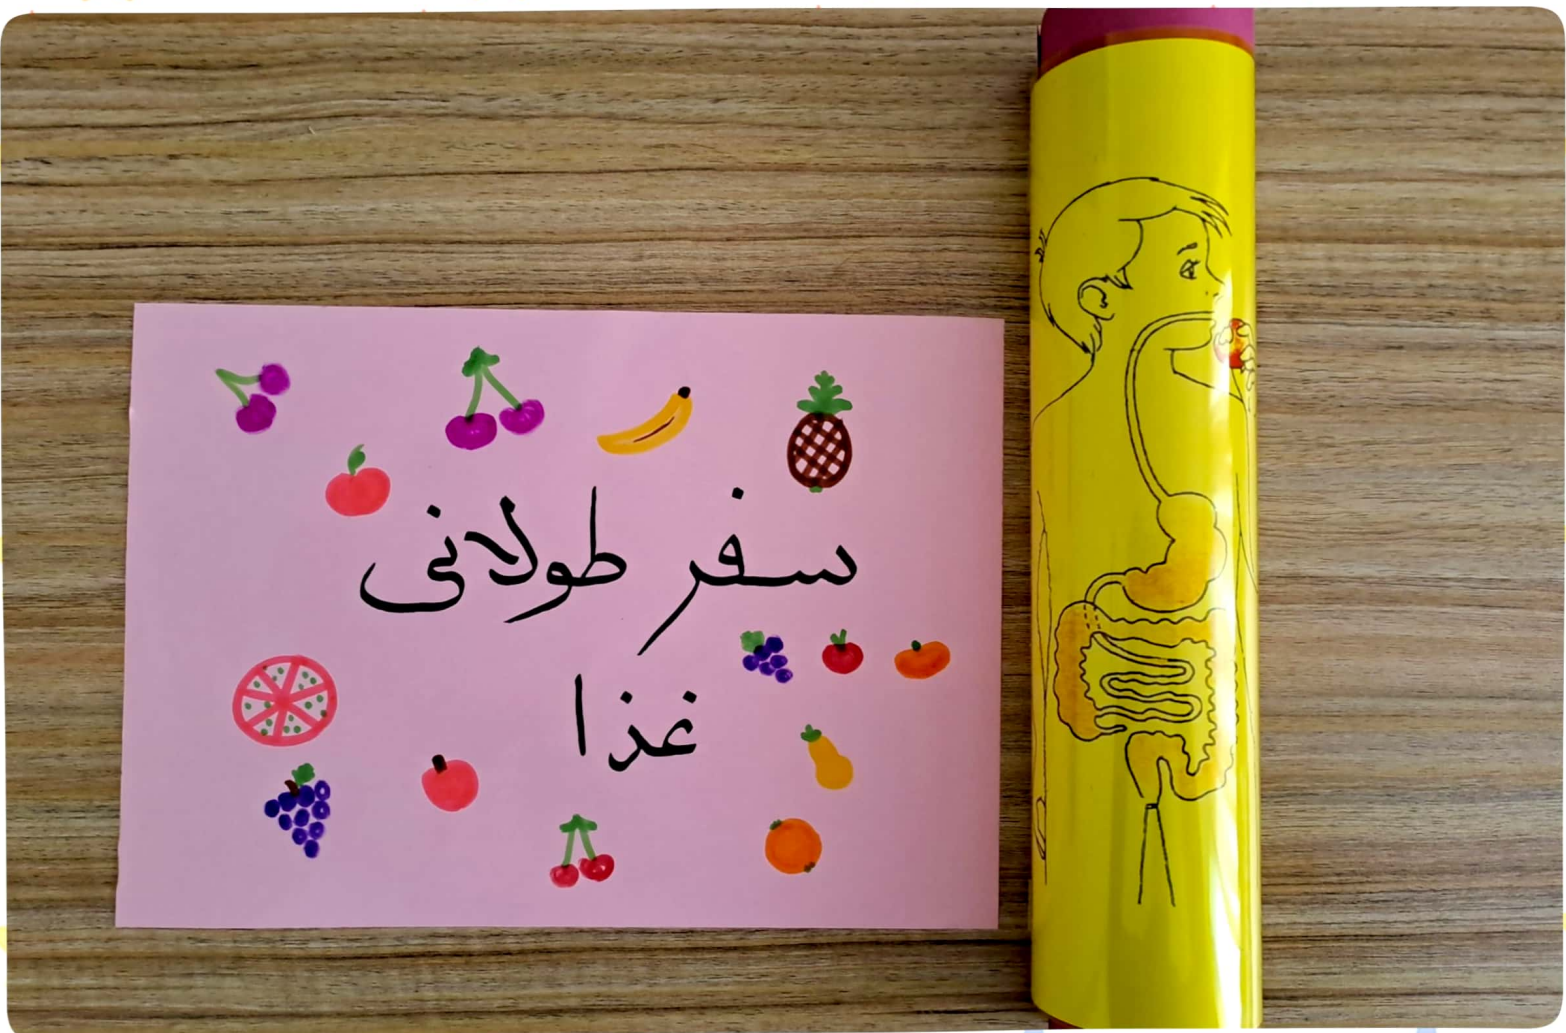 سفر طولانی
غذا